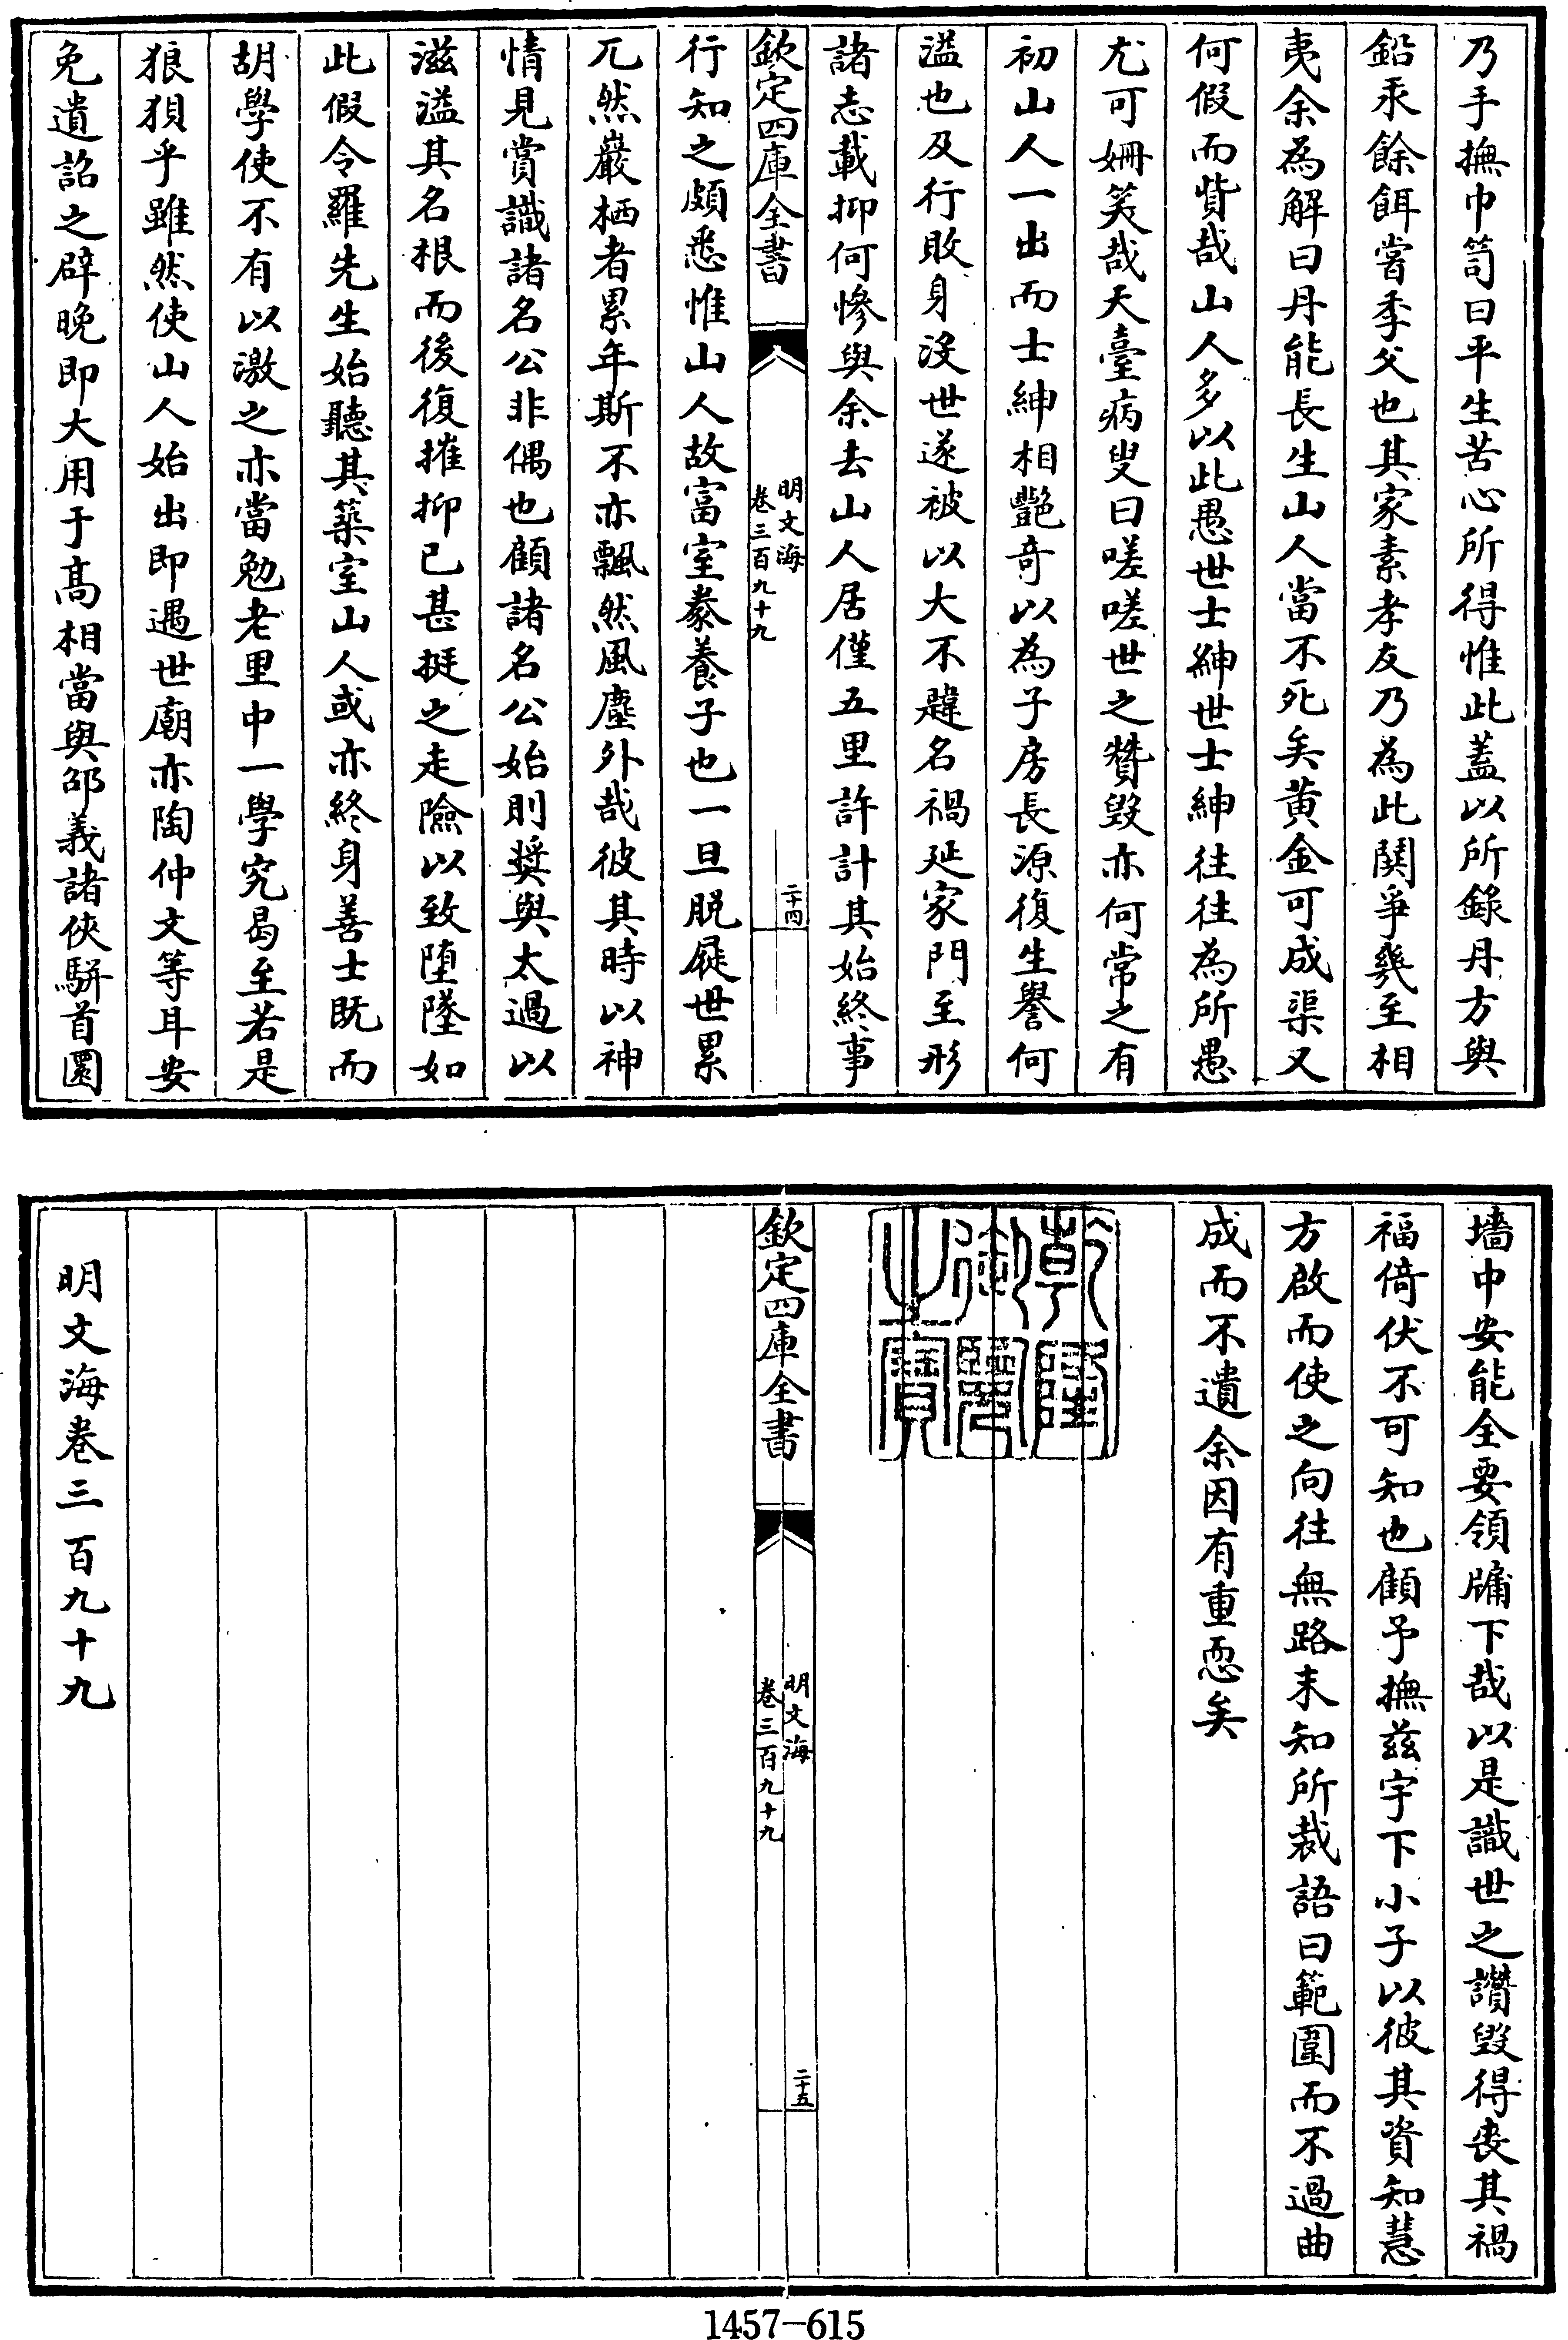 乃手撫巾笥曰平生苦心所得惟此蓋以所錄丹方與
鉛汞餘餌嘗季父也其家素孝友乃為此鬩爭幾至相
夷余為解曰丹能長生山人當不死矣黄金可成渠又
何假而貲哉山人多以此愚世士紳世士紳往往為所愚
尤可姍笑哉天臺病叟曰嗟嗟世之贊毀亦何常之有
初山人一出而士紳相艷奇以為子房長源復生譽何
溢也及行敗身沒世遂被以大不韙名禍延家門至形
諸志載抑何慘與余去山人居僅五里許計其始終事
欽定四庫全書
明文海
卷三百九十九
二十四
行知之頗悉惟山人故富室豢養子也一旦脱屣世累
兀然巖栖者累年斯不亦飄然風塵外哉彼其時以神
情見賞識諸名公非偶也顧諸名公始則奨與太過以
滋溢其名根而後復摧抑已甚挺之走險以致墮墜如
此假令羅先生始聽其築室山人或亦終身善士既而
胡學使不有以激之亦當勉老里中一學究曷至若是
狼狽乎雖然使山人始出即遇世廟亦陶仲文等耳安
免遺詔之辟晚即大用于髙相當與邵義諸俠駢首圜
墻中安能全要領牖下哉以是識世之讚毀得喪其禍
福倚伏不可知也顧予撫兹宇下小子以彼其資知慧
方啟而使之向往無路末知所裁語曰範圍而不過曲
成而不遺余因有重恧矣
乾隆御覽之寶
欽定四庫全書
明文海
卷三百九十九
二十五
明文海卷三百九十九
1457-615